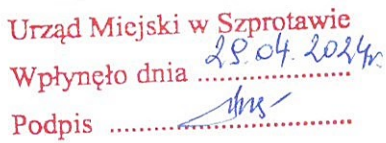 Urząd Miejski w Szprotawie
Wpłynęło dnia 29.04.2024r.
Podpis